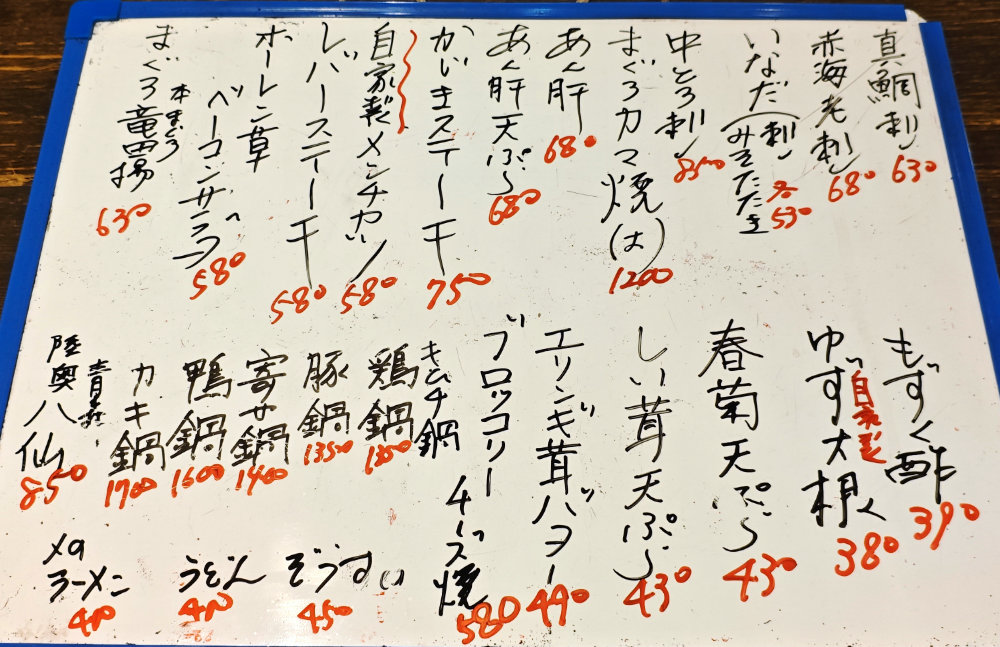 真鯛刺 630
赤海老刺 680
いなだ(刺 みそたたき 各530
中とろ刺 850
まぐろカマ焼(は) 1200
あん肝 680
あん肝天ぷら 680
かじきステーキ 750
自家製メンチカツ 580
レバーステーキ 580
ホーレン草
ベーコンサラダ 580
本まぐろ
まぐろ竜田揚 630
もずく酢 390
ゆず大根 自家製 380
春菊天ぷら 430
しい茸天ぷら 430
エリンギ茸バター 490
ブロッコリーチーズ焼 580
キムチ鍋
鶏鍋 1350
豚鍋 1350
寄せ鍋 1400
鴨鍋 1600
カキ鍋 1700
青森
陸奥八仙 850
ぞうすい 450
うどん 400
〆の
ラーメン 400